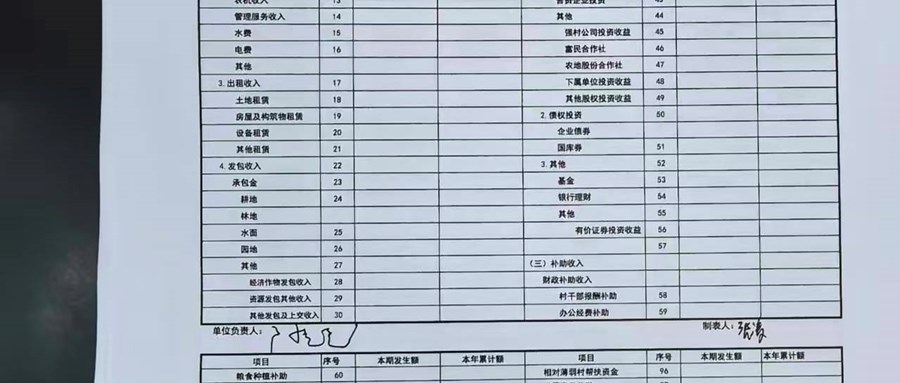 农机收入 13 自营企业投资 43
管理服务收入 14 其他 44
水费 15 强村公司投资收益 45
电费 16 富民合作社 46
其他 农地股份合作社 47
3.出租收入 17 下属单位投资收益 48
土地租赁 18 其他股权投资收益 49
房屋及构筑物租赁 19 2.债权投资 50
设备租赁 20 企业债券
其他租赁 21 国库券 51
4.发包收入 22 3.其他 52
承包金 23 基金 53
耕地 24 银行理财 54
林地 其他 55
水面 25 有价证券投资收益 56
园地 26 57
其他 27 (三)补助收入
经济作物发包收入 28 财政补助收入
资源发包其他收入 29 村干部报酬补助 58
其他发包及上交收入 30 办公经费补助 59
单位负责人: 制表人:
项目 序号 本期发生额 本年累计额 项目 序号 本期发生额 本年累计额
粮食种植补助 60 相对薄弱村帮扶资金 96